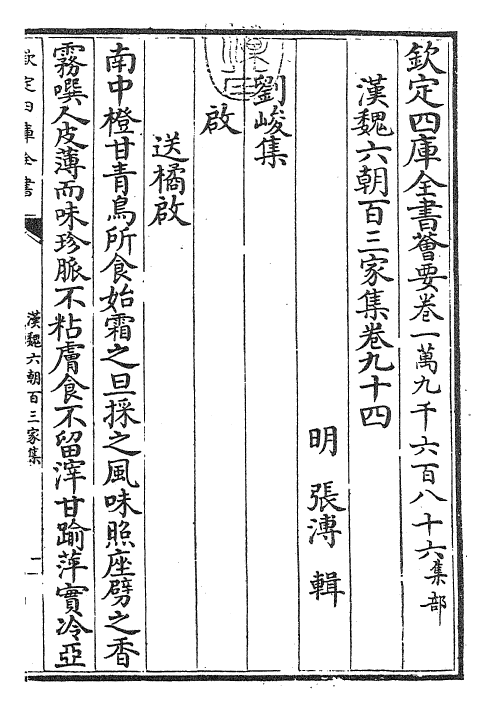 欽定四庫全書薈要卷一萬九千六百八十六集部
漢魏六朝百三家集卷九十四
明 張溥 輯
劉峻集
啟
送橘啟
南中橙甘青鳥所食始霜之旦採之風味照座劈之香
霧噀人皮薄而味珍脈不粘膚食不留滓甘踰萍實冷亞
欽定四庫全書
漢魏六朝百三家集